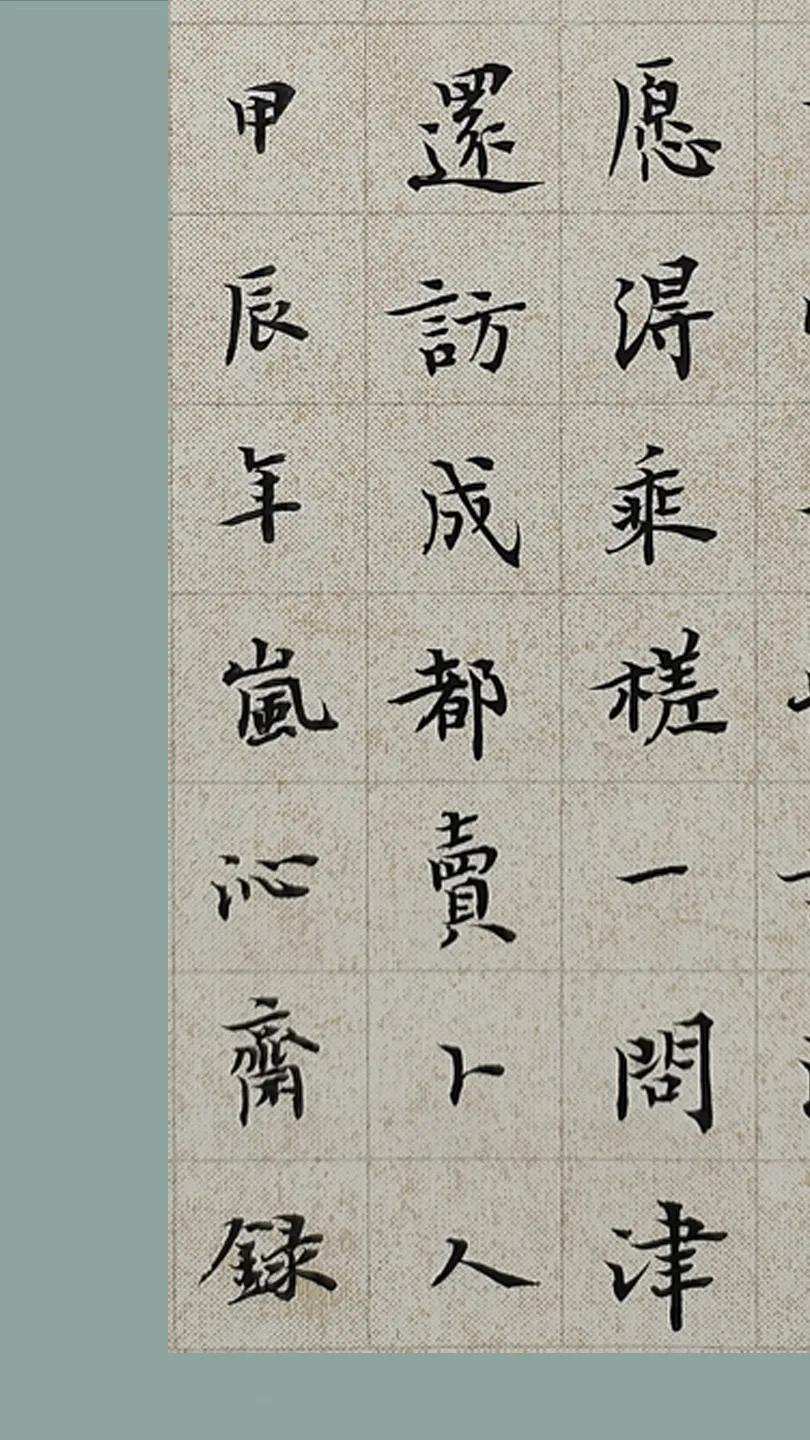 愿得乘槎一問津
還訪成都賣卜人
甲辰年嵐沁齋録